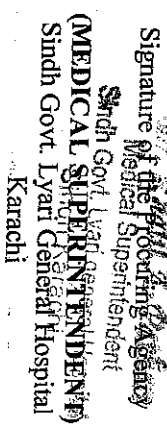 Signature of the Procuring Agency
Medical Superintendent
Sindh Govt. Lyari General Hospital
(MEDICAL SUPERINTENDENT)
Sindh Govt. Lyari General Hospital
Karachi